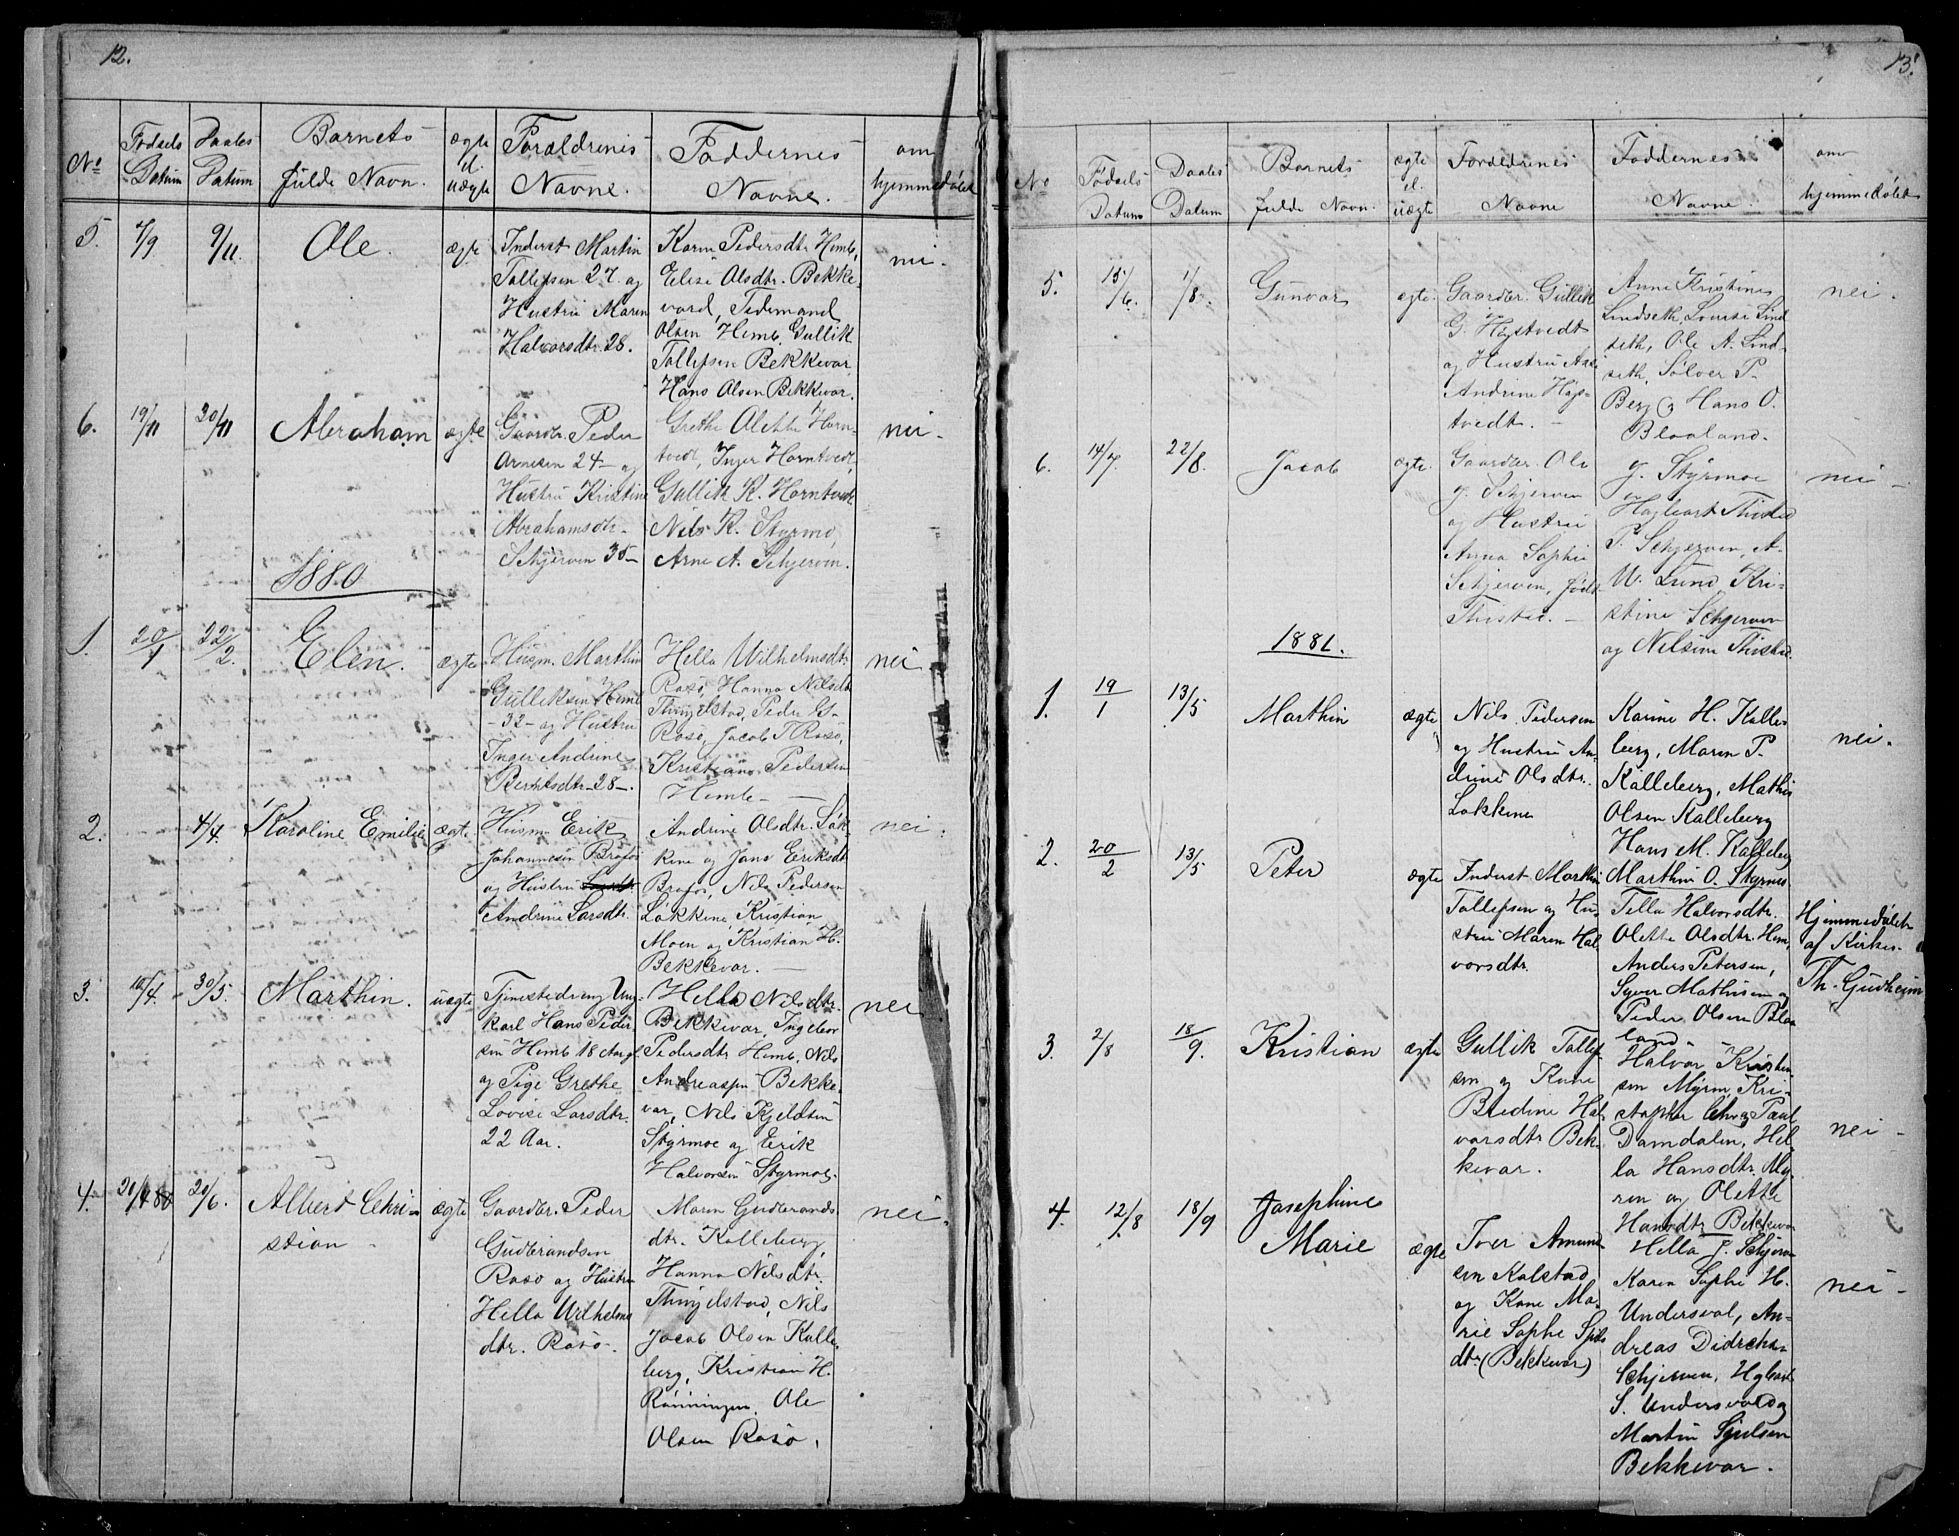 12.
No
Fødsels Datum
Daabs Datum
Barnets fulde Navn.
ægte el. uægte
Forældrenes Navne.
Faddernes Navne.
om hjemmedøbt
5.
7/9
9/11
Ole.
ægte
Inderst Martin
Tollefsen 27 og
Hustru Maren
Halvorsdtr. 28.
Karen Pedersdtr. Himb,
Elise Olsdtr. Bekke-
vard, Tidemand
Olsen Himb, Gullik
Tollefsen Bekkevar,
Hans Olsen Bekkevar.
nei.
6.
19/11
30/11
Abraham
ægte
Gaardbr. Peder
Arnesen 24 - og
Hustru Kristine
Abrahamsdtr -
Schjerven 35 -
Grethe Olette Horn-
tvedt, Inger Horntvedt,
Gullik K. Horntvedt
Nils K. Styrmo,
Arne A. Schjerven.
nei.
1880
1.
20/1
22/2.
Elen.
ægte
Husm. Marthin
Gulliksen Himb
- 32 - og Hustru
Inger Andrine
Berntsdtr - 28 -.
Hella Wilhelmsdtr
Rosø, Hanna Nilsdtr
Thingelstad, Peder G-
Rosø, Jacob T Rosø,
Kristiane Pedersen
Himb -
nei
2.
4/4.
Karoline Emilie
ægte
Husm. Erik
Johannesen Brofos
og Hustru
Andrine Larsdtr.
Andrine Olsdtr. Løk-
kene og Jans Eriksdtr
Brofos, Nils Pedersen
Løkkene, Kristian
Moen og Kristian H.
Bekkevar. -
nei.
3.
30/5.
Marthin.
uægte
Tjenestedreng Ung-
karl Hans Peder-
sen Himb 18 Aar gl.
og Pige Grethe
Lovise Larsdtr.
22 Aar.
Hella Nilsdtr.
Bekkevar, Ingebor
Pedersdtr Himb, Nils
Andreassen Bekke-
var, Nils Kjeldsen
Styrmoe og Erik
Halvorsen Styrmoe.
nei
4.
20/4 80
20/6.
Albert Chri-
stian -
ægte
Gaardbr. Peder
Gudbrandsen
Rosø og Hustru
Hella Wilhelms
dtr. Rosø -.
Maren Gudbrands
dtr. Kalleberg,
Hanna Nilsdtr.
Thingelstad, Nils
Jacob Olsen Kalle-
berg, Kristian H.
Rønningen, Ole
Olsen Rosø.
nei.
13.
No
Fødsels Datum
Daabs Datum
Barnets fulde Navn.
ægte el. uægte
Forældrenes Navne
Faddernes Navne
om hjemmedøbt
5.
15/6.
1/8.
Gunvor
ægte.
Gaardbr. Gullik
G. Høgstvedt
og Hustru
Andrine Høgs-
tvedt. -
Anne Kristine
Lindseth, Lovise Lind
seth, Ole A. Lind-
seth, Sølver P.
Berg og Hans O.
Blaaland.
nei.
6.
14/7.
22/8.
Jacob
ægte.
Gaardbr. Ole
J. Schjerven
og Hustru
Anna Sophie
Schjerven, født
Thisted. -
J. Styrmoe
Hagbart Thisted
P. Schjerven, A-
W. Lund, Kri-
stine Schjerven
og Nilsine Thisted.
nei -
1881.
1.
19/1
13/5
Marthin
ægte
Nils Pedersen
og Hustru An
drine Olsdtr.
Løkkene
Karine H. Kalle-
berg, Maren P.
Kalleberg, Mathis
Olsen Kalleberg
Hans M. Kalleberg
nei.
2.
20/2
13/5
Peter
ægte
Inderst Marthin
Tollefsen og Hu-
stru Maren Hal
vorsdtr.
Marthin O. Styrmo
Tella Halvorsdtr.
Olette Olsdtr. Him,
Anders Petersen,
Syver Mathisen og
Peder Olsen Blaa
land -
Hjemmedøbt
af Kirkes.
Th. Gudheim
3.
2/8
18/9.
Kristian
ægte
Gullik Tollef-
sen og Kone
Bredine Hal
vorsdtr Bek-
kevar.
Halvor Kristen-
sen Myren, Kri-
stopher Chr og Paul
Damdalen, Hel-
la Hansdtr. My-
ren og Olette
Hansdtr Bekkevar
nei -
4.
12/8
18/9
Josephine
Marie
ægte
Iver Amund
sen Kalstad
og Kone Ma-
rie Sophe
dtr. (Bekkevar)
Hella J. Schjerven
Karen Sophie H.
Undersvol, An-
dreas Didrchs.
Schjerven, Hgbart
S. Undersvold og
Martin Sjulsen
Bekkevar.
nei -